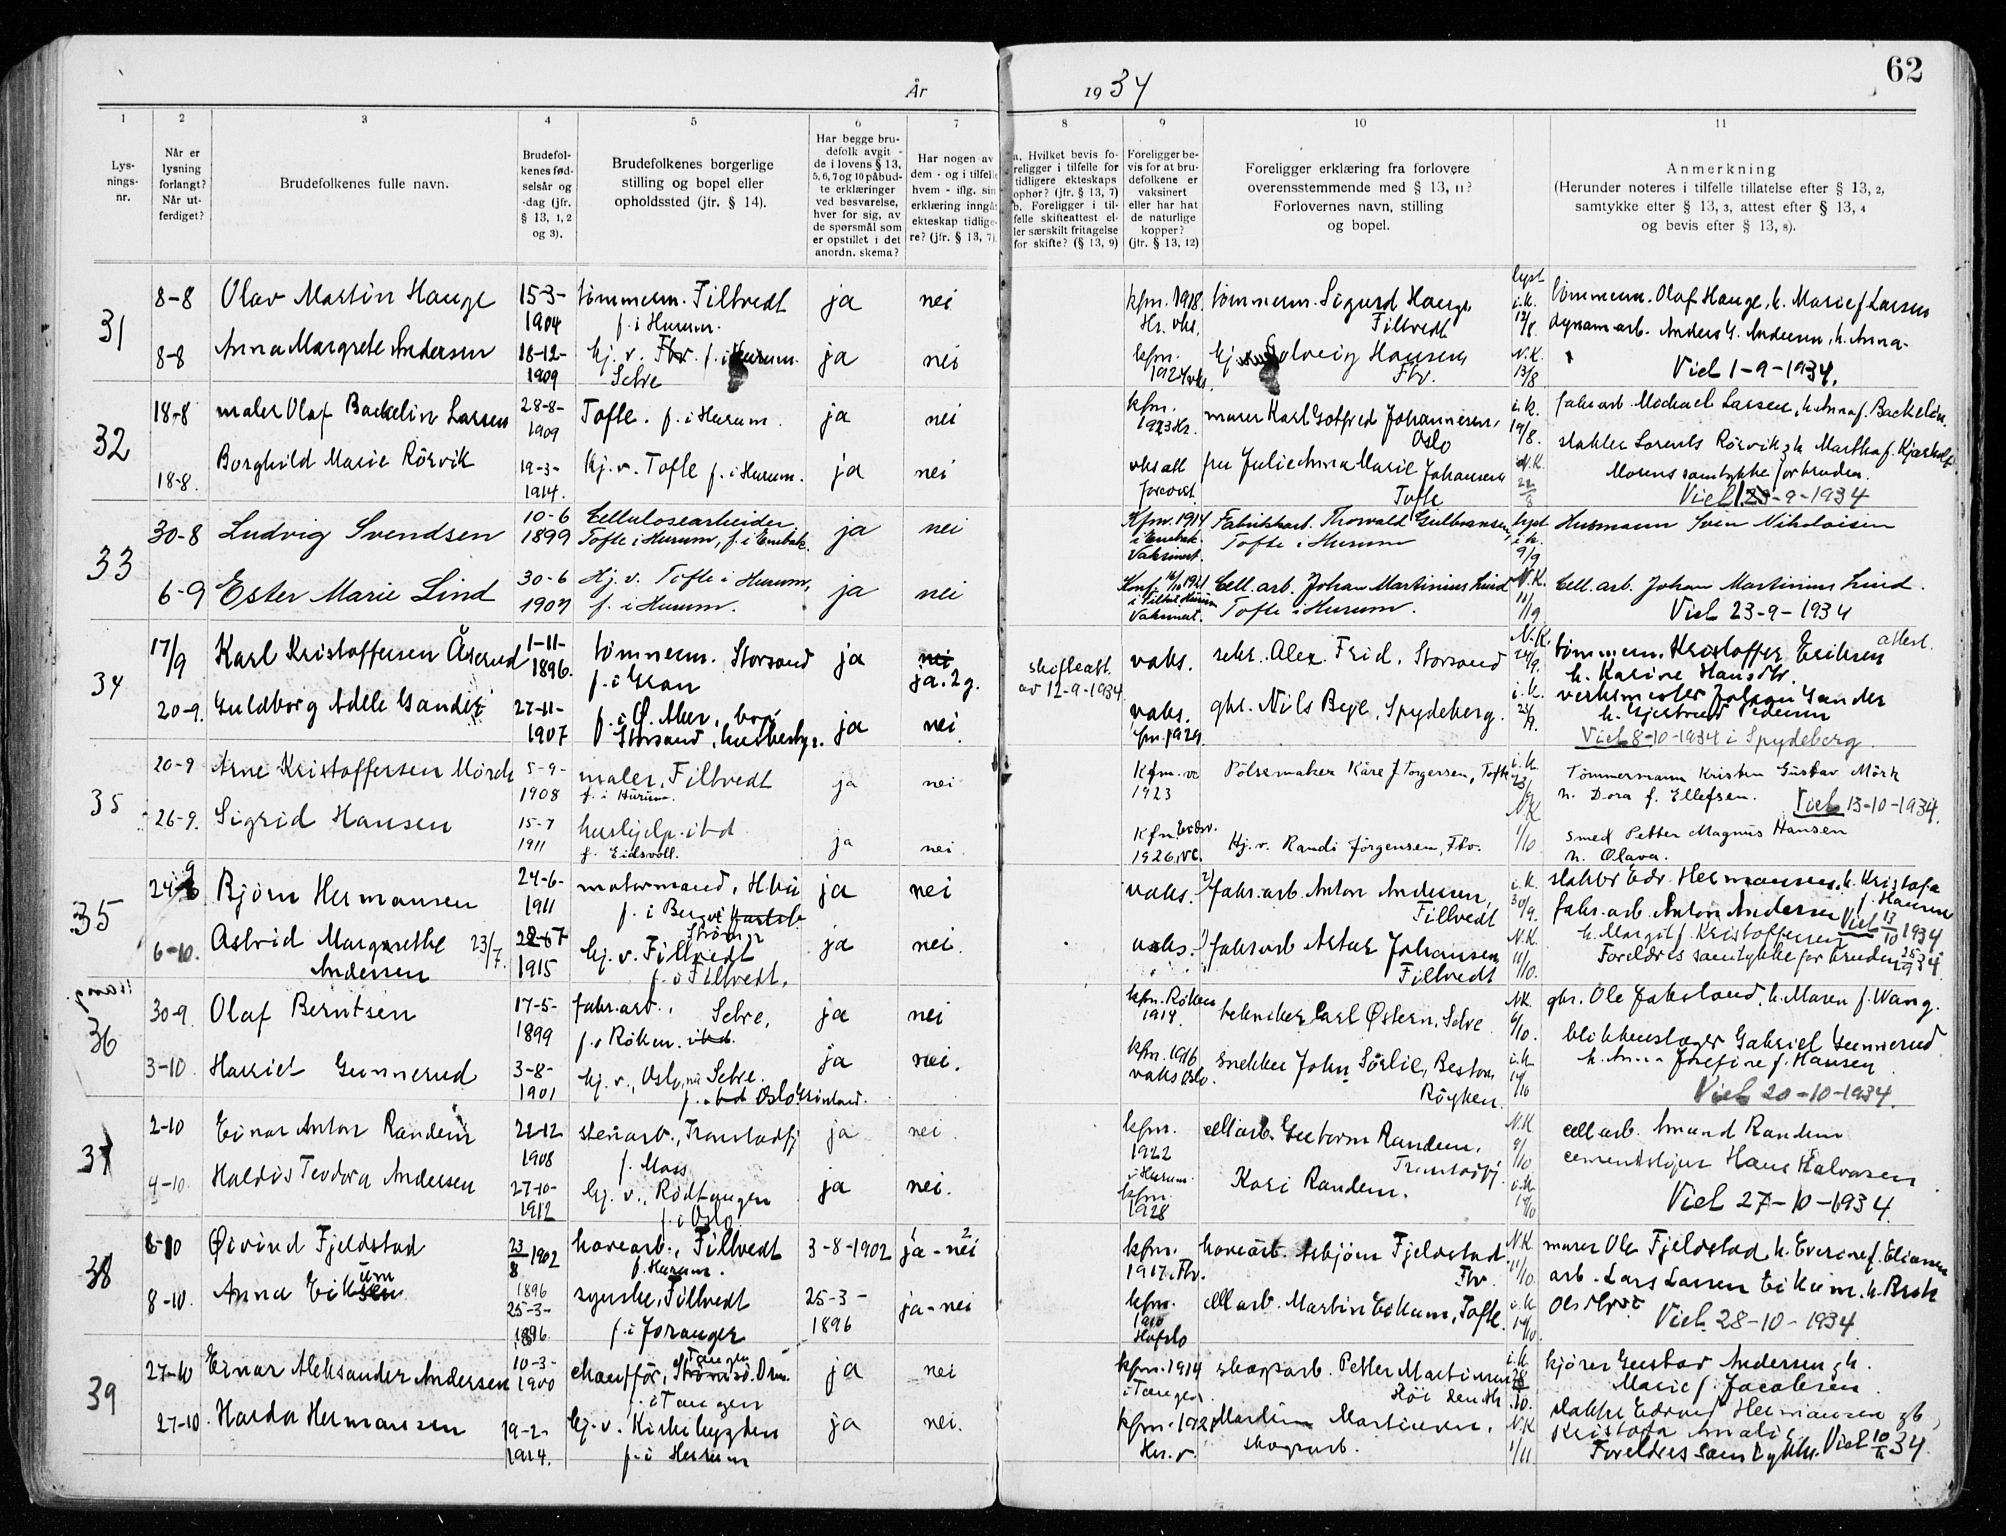 62
År 1934
1 2 3 4 5 6 7 8 9 10 11
Lysningsnr.
Når er lysning forlangt? Når utferdiget?
Brudefolkenes fulle navn.
Brudefolkenes fødselsår og -dag (jfr. § 13, 1, 2 og 3).
Brudefolkenes borgerlige stilling og bopel eller opholdssted (jfr. § 14).
Har begge brudefolk avgitt de i lovens § 13, 5, 6, 7 og 10 påbudte erklæringer ved besvarelse, hver for sig, av de spørsmål som er opstillet i det anordn. skema?
Har nogen av dem - og i tilfelle hvem - iflg. sin erklæring inngått ekteskap tidligere? (jfr. § 13, 7)
a. Hvilket bevis foreligger i tilfelle for tidligere ekteskaps ophør? (jfr. § 13, 7) b. Foreligger i tilfelle skifteattest eller særskilt fritagelse for skifte? (§ 13, 9)
Foreligger bevis for at brudefolkene er vaksinert eller har hat de naturlige kopper? (jfr. § 13, 12)
Foreligger erklæring fra forlovere overensstemmende med § 13, 11? Forlovernes navn, stilling og bopel.
Anmerkning (Herunder noteres i tilfelle tillatelse efter § 13, 2, samtykke efter § 13, 3, attest efter § 13, 4 og bevis efter § 13, 8).
31
8-8 Olav Martin Hauge 15-3-1904 tømmerm. Filtvedt f. i Hurum. ja nei kfm. 1918 Hr. vks. tømmerm. Sigurd Hauge Filtvedt lyst i.k. 12/8. tømmerm. Olaf Hauge, h. Marie f. Larsen
8-8 Anna Margrete Andersen 18-12-1909 hj. v. f. i Hurum. Sætre ja nei kfm. 1924 vks. hj. Solveig Hansen Flv. N.K. 13/8 dynamarb. Anders G. Andersen, h. Anna
Viet 1-9-1934.
32
18-8 maler Olaf Backelin Larsen 28-8-1909 Tofte. f. i Hurum. ja nei kfm. 1923 Hr. murer Karl Gotfred Johannesen, Oslo i.k. 19/8. fabr.arb. Michael Larsen, h. Anna f. Backelin.
18-8. Borghild Marie Rörvik 19-3-1914. hj. v. Tofte f. i Hurum. ja nei vks att forevist fru Julie Anna Marie Johansen Tofte N.K. stakker Lorents Rörvik h. Martha f.
Morens samtykke for bruden.
Viet -9-1934
33
30-8 Ludvig Svendsen 10-6 1899 Cellulosearbeider, Tofte i Hurum, f. i Enebak. ja nei Kfm. 1914 i Enebak. Vaksinert. Fabrikkarb. Thorvald Gulbransen, Tofte i Hurum lyst i.k. 9/9 Husmann Sven Nikolaisen
6-9 Ester Marie Lind 30-6 1907 Hj. v. Tofte i Hurum, f. i Hurum. ja nei Konf. 1921 i Hurum Vaksinert. Cell. arb. Johan Martinius Lind Tofte i Hurum. N.K. 11/9 Cell. arb. Johan Martinius Lind.
Viet 23-9-1934
34
17/9 Karl Kristoffersen Åserud 1-11-1896. tømmerm. Storsand f. i Gran ja nei ja. 2 g. skifteatt. av 12-9-1934 vaks. Alex. Frid, Storsand N.K. 24/9. tømmerm. Kristoffer Eriksen attest. h. Karine Hansdtr.
20-9. Guldborg Adele Gander 27-11-1907 f. i Ø. Aker, bor Storsand, husbestyr. ja nei vaks. kfm. 1929 gbr. Nils Beje, Spydeberg. i.k. 23/9. verksmester Johan Gander h. Gjertrud Pedersen
Viet 8-10-1934 i Spydeberg
35
20-9 Arne Kristoffersen Mörch 5-9-1908 maler, Filtvedt f. i Hurum. ja nei Kfm. vc 1923 Pölsemaker Kåre J. Torgersen, Tofte i.k 23/9 Tömmermann Kristen Gustav Mörk h. Dora f. Ellefsen. Viet 13-10-1934.
26-9. Sigrid Hansen 15-7 1911 hushjelp. ibd f. Eidsvoll. ja nei. Kfm. Eidsv. 1926, vc. Hj. v. Randi Jörgensen, Flv. N.K 1/10 smed Petter Magnus Hansen h. Olava.
35
24-9 Bjørn Hermansen 24-6-1911 motormand, f. i Berg i Strømm ja nei vaks. 2) fabr. arb Anton Andersen, Filtvedt i.k. 30/9. stakker Edv. Hermansen, h. Kristofa f. Hansen
6-10. Astrid Margrethe Andersen 23/7. 1915 hj. v. Filtvedt f. i Filtvedt. ja nei. vaks. 1) fabr arb Artur Johansen Filtvedt N.K. 11/10. fabr. arb. Anton Andersen Viet 13/10 1934 h. Margit f. Kristoffersen
Foreldres samtykke for bruden 25/9 34
36
30-9 Olaf Berntsen 17-5-1899 fabr. arb., Sætre, f. i Röken. ja nei kfm. Röken 1914. tekniker Carl Østern, Sætre N.K. 6/10. gbr. Ole Jaksland, h. Maren f. Wang.
3-10. Harriet Gunnerud 3-8-1901 hj. v., Oslo, nu Sætre. f. Oslo Grønland. ja nei. kfm. 1916 vaks Oslo. snekker John Sörlie, Röyken. i.k 14/10 blikkenslager Gabriel Gunnerud h. Anna Josefine f. Hansen
Viet 20-10-1934.
37
2-10 Einar Anton Randem 22-12 1908 stenarb., Tronstadfj f. Moss ja nei. kfm. 1922 i Hurum. cellarb. Guttorm Randem, N.K 9/10 cellarb. Amund Randem
4-10. Haldis Teodora Andersen 27-10-1912 hj. v., Rödtangen f. i Oslo. ja nei. kfm 1928 Kari Randem. i.k 14/10 Hans Halvorsen
Viet 27-10-1934.
38
6-10 Øivind Fjeldstad 23/8 1902 havearb., Filtvedt f. Hurum. 3-8-1902 ja - nei kfm. 1917. Flv. havearb. Asbjørn Fjeldstad Flv. N.K 11/10. murer Ole Fjeldstad, h. Everine f. Eliassen
8-10. Anna Eikum 1896 25-3-1896 syerske, Filtvedt f. i Joranger 25-3-1896 ja - nei kfm. 1910 Hafslo cellarb. Martin Eikum, Tofte. i.k 14/10. arb. Lars Larsen Eikum, h. Brit Olsdtr.
Viet 28-10-1934
39
27-10 Einar Aleksander Andersen 10-3-1900 chauffør, Tangen Drm. f. i Tangen ja nei kfm. 1914 i Tangen skogsarb. Petter Martinsen i.k 28/10. kjører Gustav Andersen h. Marie f. Jacobsen.
27-10. Harda Hermansen 19-2-1914. hj. v. Kirkebygden f. i Hurum ja nei. kfm. 1928 Hr. v. Martin Martinsen, skogsarb. N.K 1/11 stakker Edvard Hermansen Kristofa Amalie
Foreldres samtykke. Viet 10/11 34.